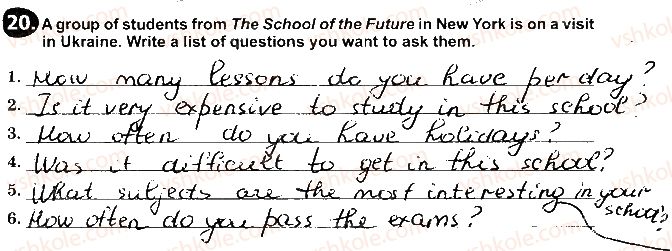 20. A group of students from The School of the Future in New York is on a visit
in Ukraine. Write a list of questions you want to ask them.
1. How many lessons do you have per day?
2. Is it very expensive to study in this school?
3. How often do you have holidays?
4. Was it difficult to get in this school?
5. What subjects are the most interesting in your
school?
6. How often do you pass the exams?